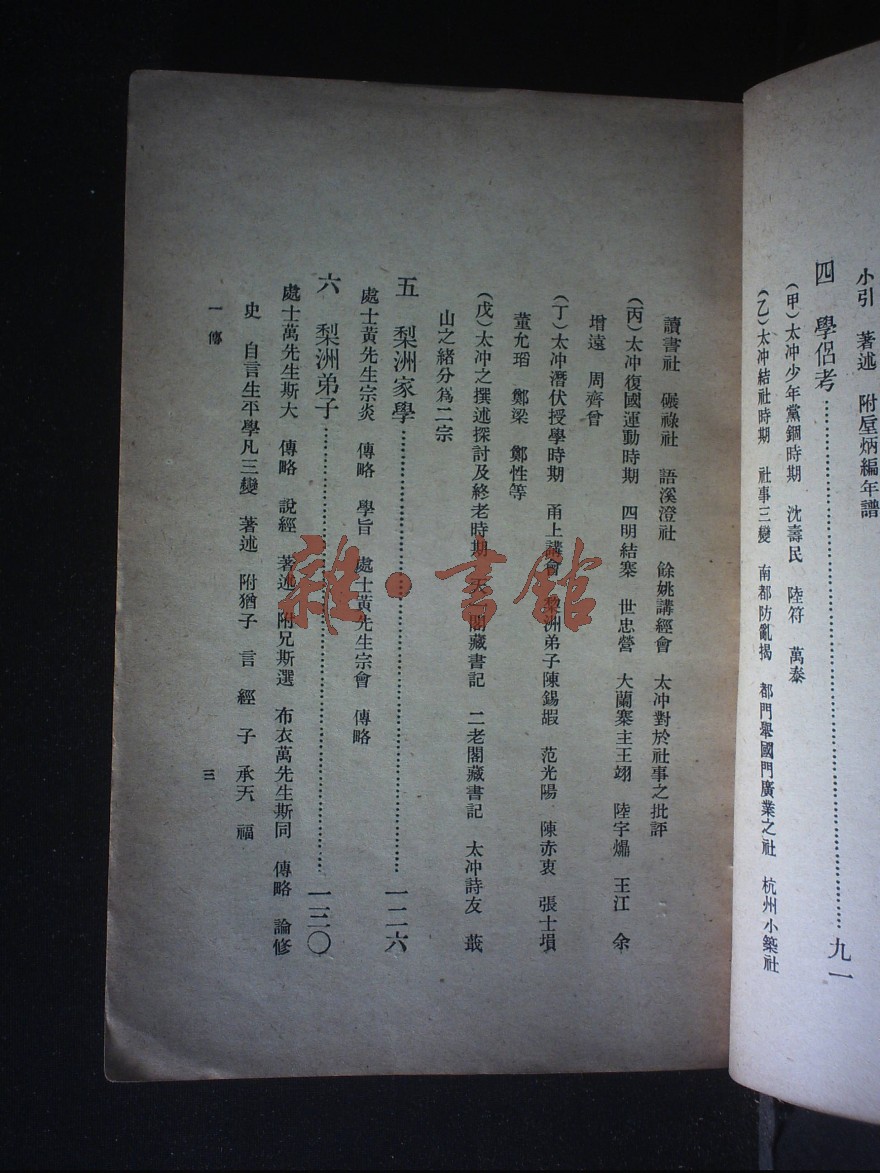 小引　著述　附垕炳編年譜
四　學侶考…………………………九一
(甲)太冲少年黨錮時期　沈壽民　陸符　萬泰
(乙)太冲結社時期　社事三變　南都防亂揭　都門舉國門廣業之社　杭州小築社
讀書社　礙祿社　語溪澄社　餘姚講經會　太冲對於社事之批評
(丙)太冲復國運動時期　四明結寨　世忠營　大蘭寨主王翊　陸宇㸌　王江　余
增遠　周齊曾
(丁)太冲潛伏授學時期　甬上講會　梨洲弟子陳錫嘏　范光陽　陳赤衷　張士塤
董允瑫　鄭梁　鄭性等
(戊)太冲之撰述探討及終老時期　天一閣藏書記　二老閣藏書記　太冲詩友　蕺
山之緒分爲二宗
五　梨洲家學…………………………一二六
處士黃先生宗炎　傳略　學旨　處士黃先生宗會　傳略
六　梨洲弟子…………………………一三〇
處士萬先生斯大　傳略　說經　著述　附兄斯選　布衣萬先生斯同　傳略　論修
史　自言生平學凡三變　著述　附猶子　言　經　子　承天　福
一　傳
三
雜·書館